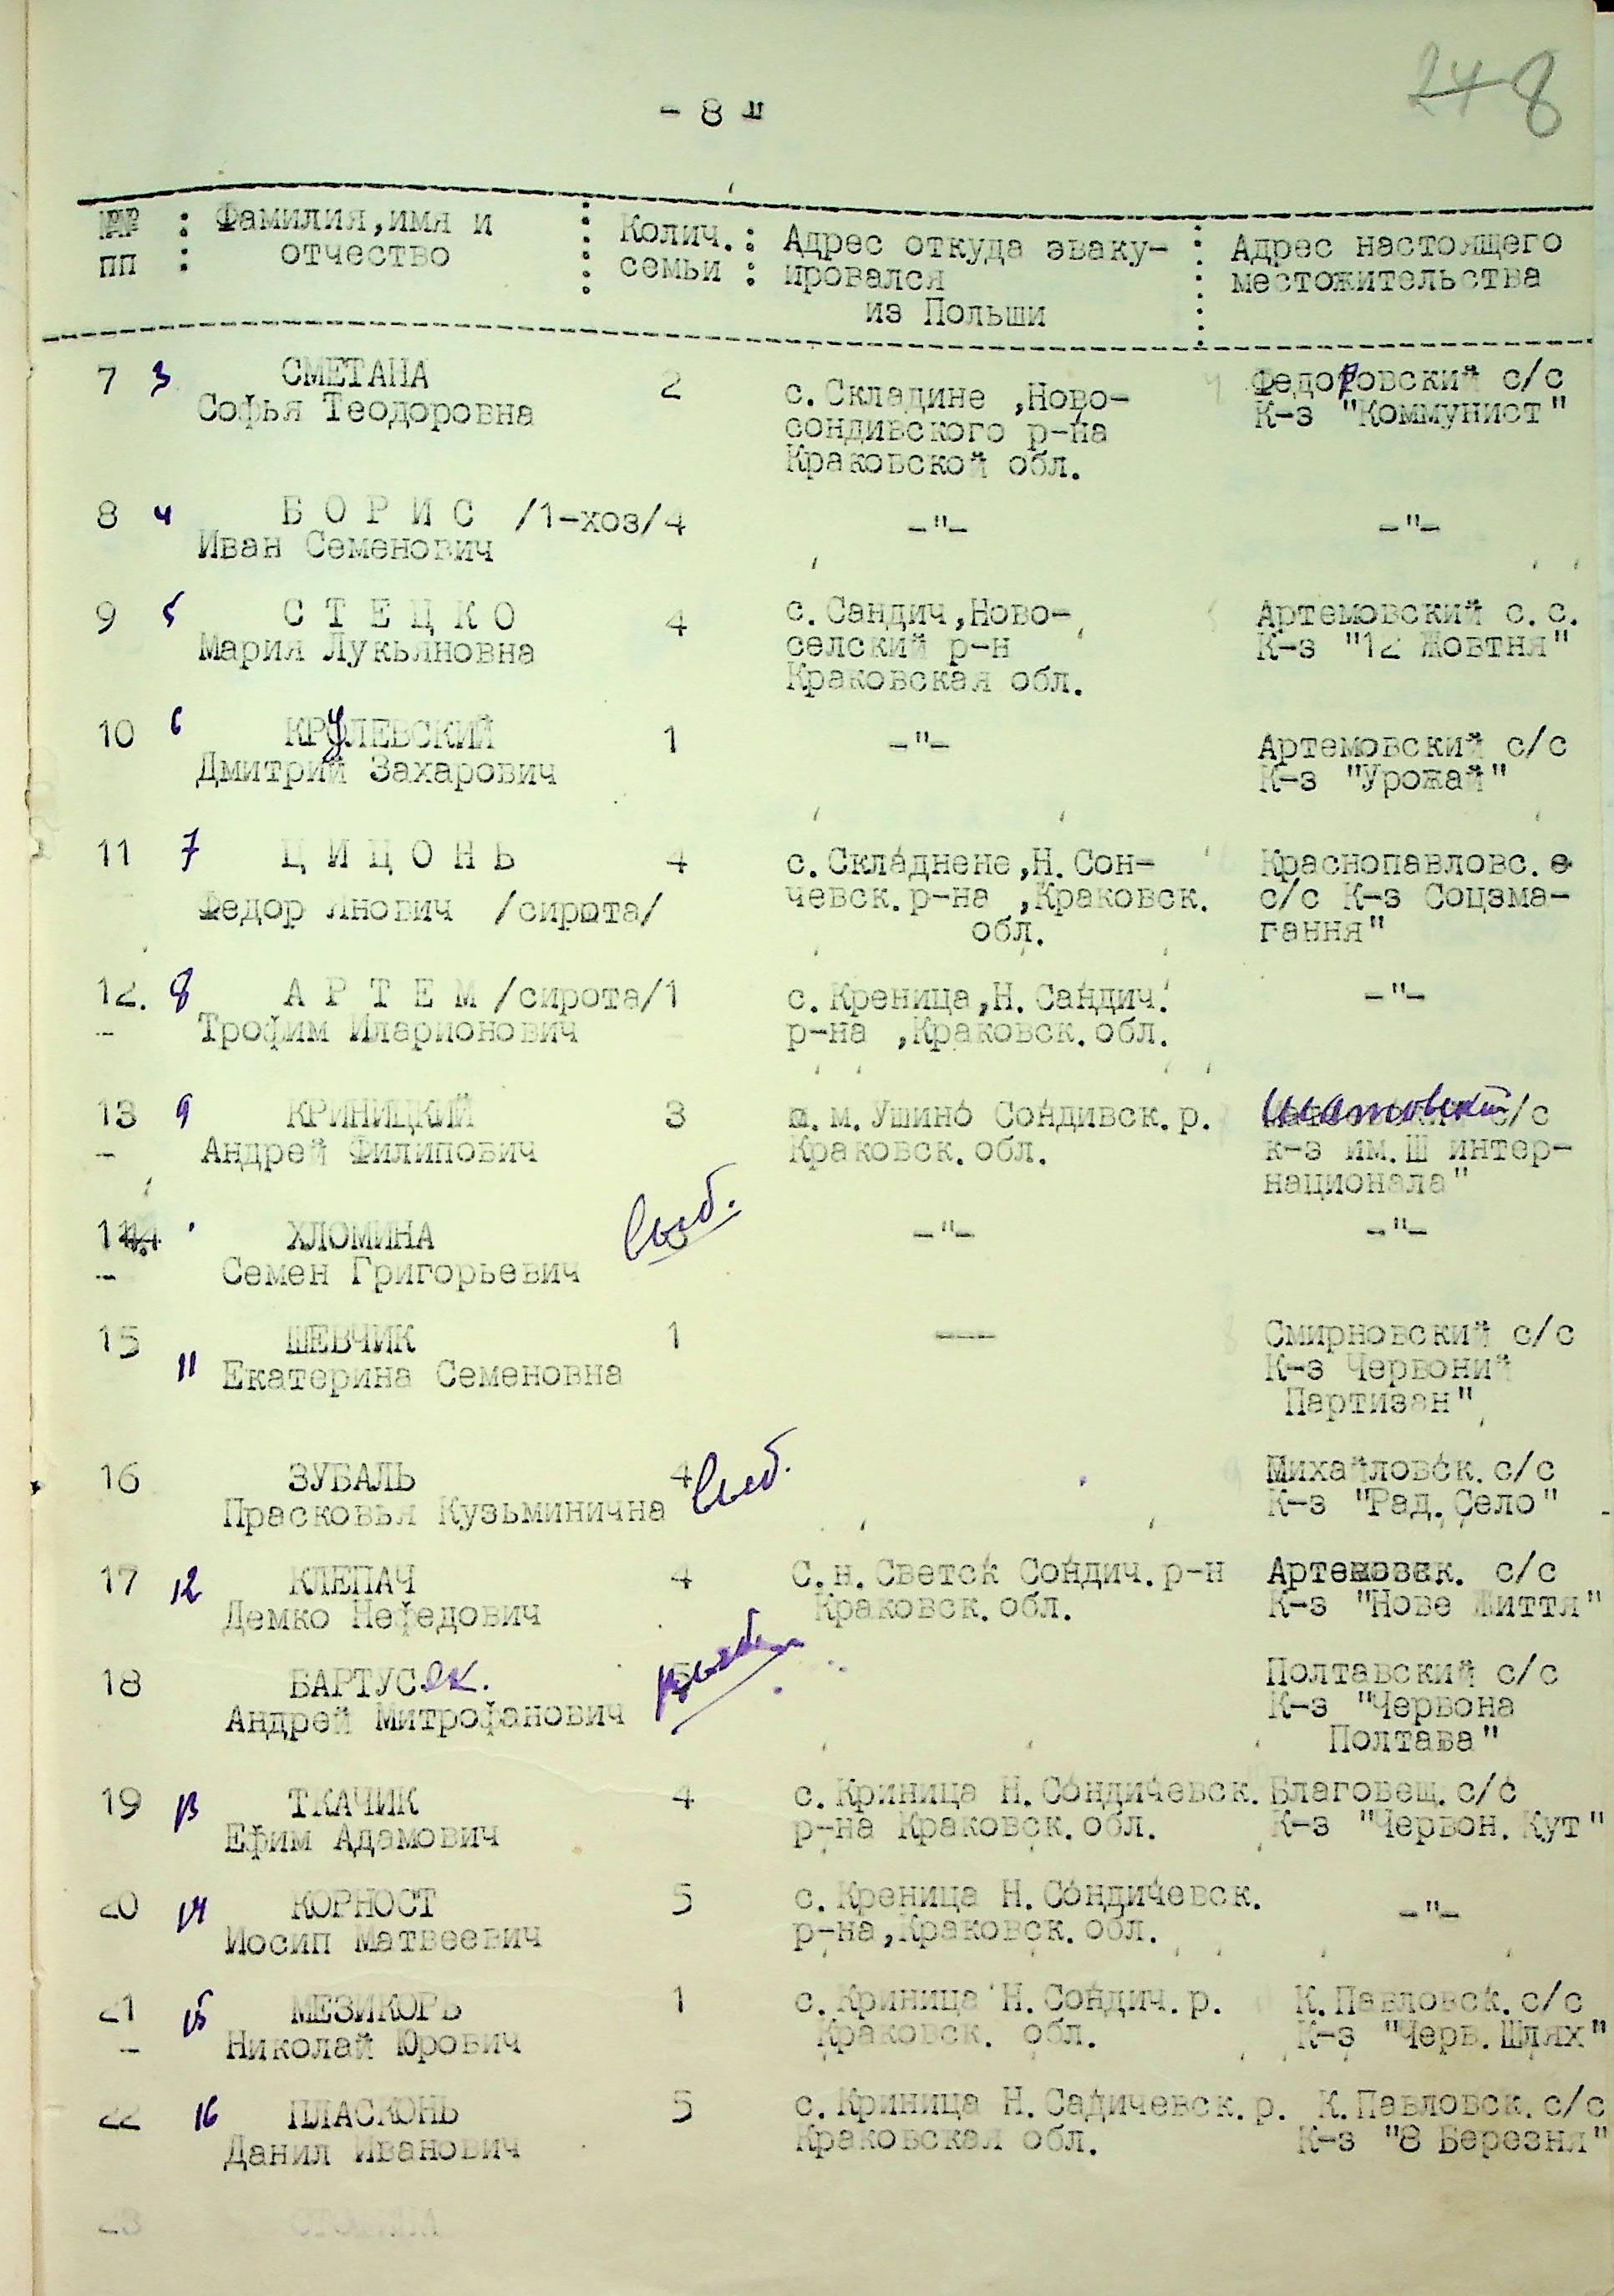 24 8
- 8 "
№№ : Фамилия,имя и : Колич. : Адрес откуда эваку- : Адрес настоящего
пп : отчество : семьи : ировался : местожительства
из Польши
7 3 СМЕТАНА 2 с.Складине ,Ново- Федоровский с/с
Софья Теодоровна сондивского р-на К-з "Коммунист"
Краковской обл.
8 4 Б О Р И С /1-хоз/4 -"- -"-
Иван Семенович
9 5 С Т Е Ц К О 4 с.Сандич,Ново- Артемовский с.с.
Мария Лукьяновна селский р-н К-з "12 Жовтня"
Краковская обл.
10 6 КРУЛЕВСКИЙ 1 -"- Артемовский с/с
Дмитрий Захарович К-з "Урожай"
11 7 Ц И Ц О Н Ь 4 с.Складнене,Н.Сон- Краснопавловс.
Федор Янович /сирота/ чевск.р-на ,Краковск. с/с К-з Соцзма-
обл. гання"
12. 8 А Р Т Е М /сирота/1 с.Креница,Н.Сандич. -"-
- Трофим Иларионович р-на ,Краковск.обл.
13 9 КРИНИЦКИЙ 3 м.Ушино Сондивск.р. Шатовский с/с
- Андрей Филипович Краковск.обл. к-з им.Ш интер-
национала"
14 ХЛОМИНА выб. -"- -"-
- Семен Григорьевич
15 ШЕВЧИК 1 --- Смирновский с/с
11 Екатерина Семеновна К-з Червоний
Партизан"
16 ЗУБАЛЬ 4 выб. Михайловск.с/с
Прасковья Кузьминична К-з "Рад.Село"
17 12 КЛЕПАЧ 4 С.н.Светск Сондич.р-н Артемовск. с/с
Демко Нефедович Краковск.обл. К-з "Нове Життя"
18 БАРТУСяк. 5 выб. Полтавский с/с
Андрей Митрофанович К-з "Червона
Полтава"
19 13 ТКАЧИК 4 с.Криница Н.Сондичевск. Благовещ.с/с
Ефим Адамович р-на Краковск.обл. К-з "Червон.Кут"
20 14 КОРНОСТ 5 с.Креница Н.Сондичевск. -"-
Иосип Матвеевич р-на,Краковск.обл.
21 15 МЕЗИКОРЬ 1 с.Криница Н.Сондич.р. К.Павловск.с/с
- Николай Юрович Краковск. обл. К-з "Черв.Шлях"
22 16 ПЛАСКОНЬ 5 с.Криница Н.Садичевск.р. К.Павловск.с/с
Данил Иванович Краковская обл. К-з "8 Березня"
23